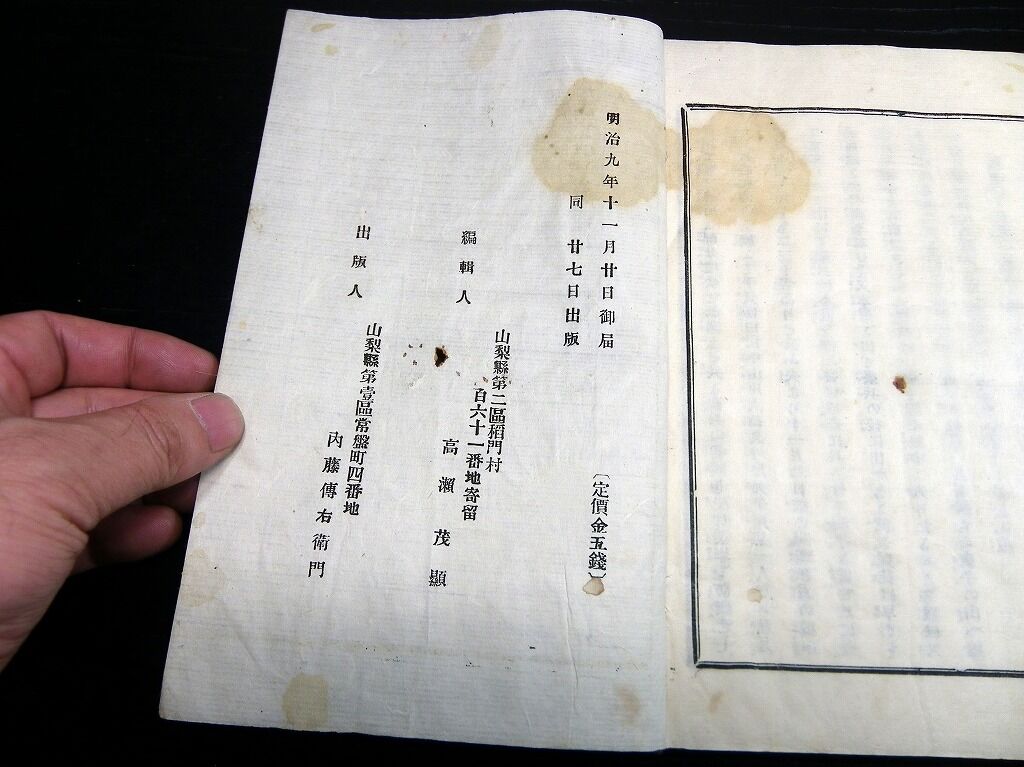 明治九年十一月廿日御届
同 廿七日出版
〔定價金五錢〕
編輯人
山梨縣第二區稻門村
百六十一番地寄留
高瀬茂顯
出版人
山梨縣第壹區常盤町四番地
内藤傳右衛門